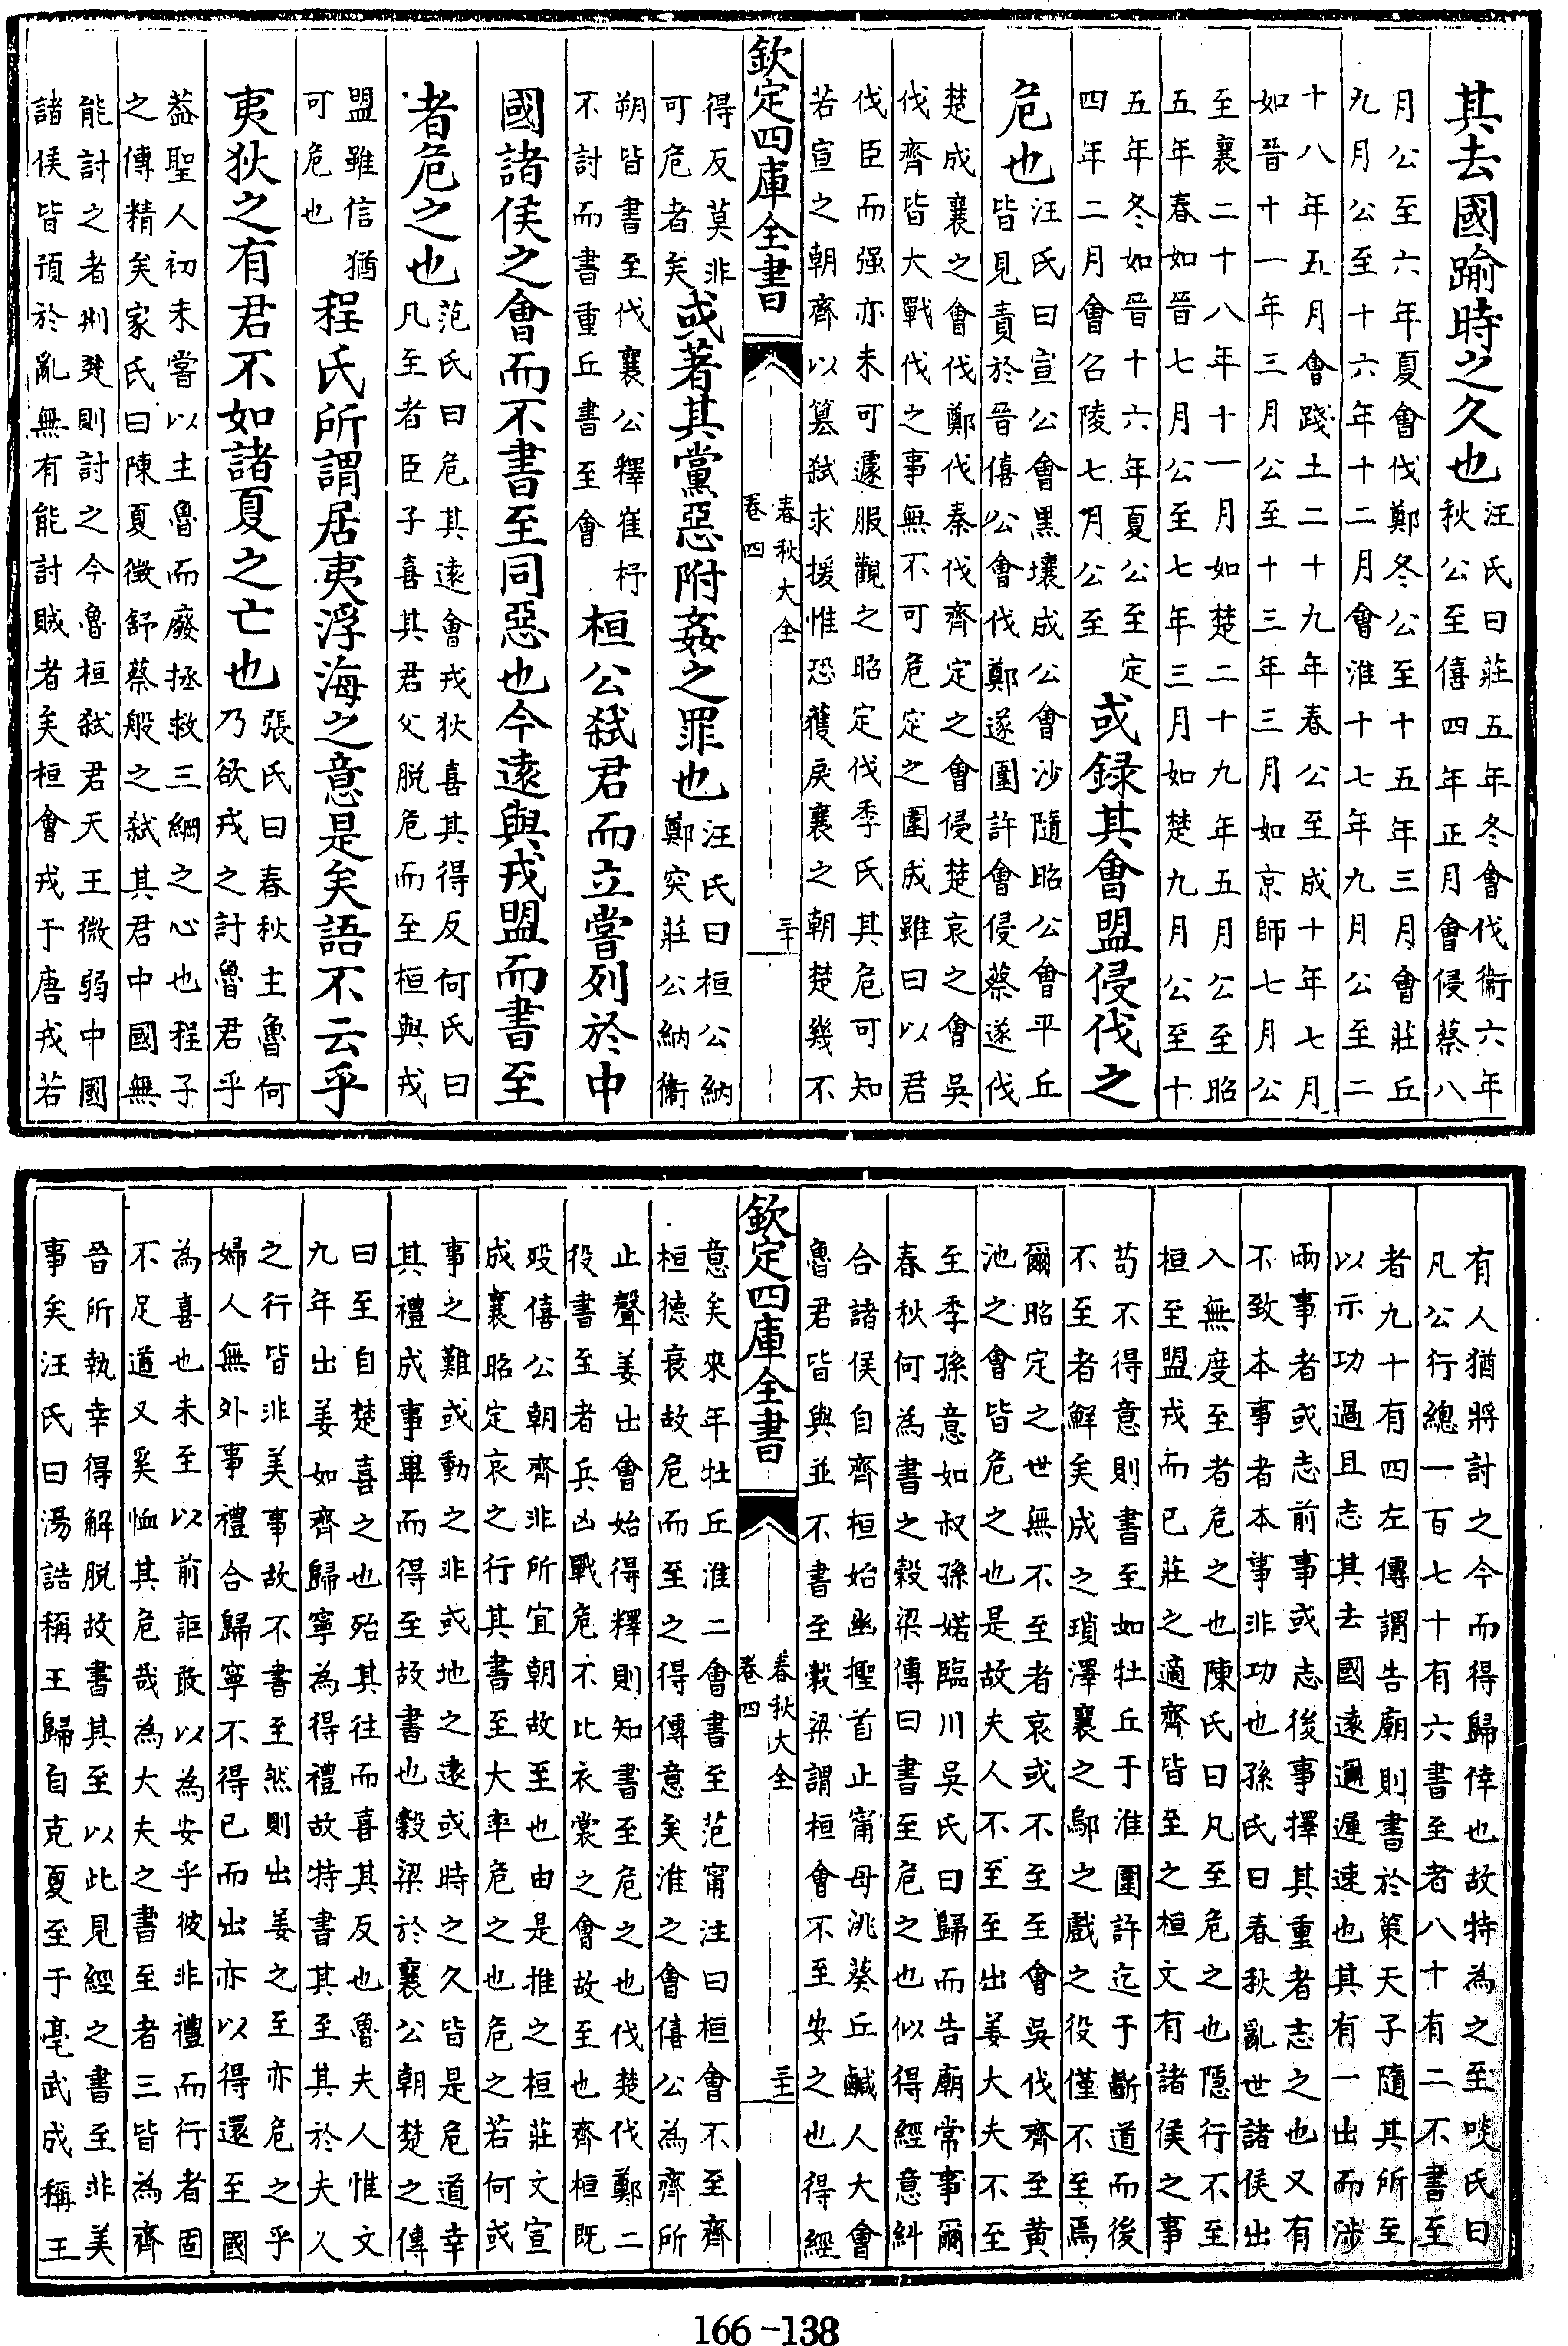 其去國踰時之久也汪氏曰莊五年冬會伐衛六年
秋公至僖四年正月會侵蔡八
月公至六年夏會伐鄭冬公至十五年三月會莊丘
九月公至十六年十二月會淮十七年九月公至二
十八年五月會踐土二十九年春公至成十年七月
如晉十一年三月公至十三年三月如京師七月公
至襄二十八年十一月如楚二十九年五月公至昭
五年春如晉七月公至七年三月如楚九月公至十
五年冬如晉十六年夏公至定
四年二月會召陵七月公至
或録其會盟侵伐之
危也汪氏曰宣公會黑壤成公會沙隨昭公會平丘
皆見責於晉僖公會伐鄭遂圍許會侵蔡遂伐
楚成襄之會伐鄭伐秦伐齊定之會侵楚哀之會吳
伐齊皆大戰伐之事無不可危定之圍成雖曰以君
伐臣而强亦未可遽服觀之昭定伐季氏其危可知
若宣之朝齊以簒弑求援惟恐獲戾襄之朝楚幾不
欽定四庫全書
春秋大全
卷四
三十
得反莫非
可危者矣
或著其黨惡附姦之罪也汪氏曰桓公納
鄭突莊公納衛
朔皆書至伐襄公釋崔杼
不討而書重丘書至會
桓公弑君而立嘗列於中
國諸侯之會而不書至同惡也今遠與戎盟而書至
者危之也范氏曰危其遠會戎狄喜其得反何氏曰
凡至者臣子喜其君父脱危而至桓與戎
盟雖信猶
可危也
程氏所謂居夷浮海之意是矣語不云乎
夷狄之有君不如諸夏之亡也張氏曰春秋主魯何
乃欲戎之討魯君乎
葢聖人初未嘗以主魯而廢拯救三綱之心也程子
之傳精矣家氏曰陳夏徵舒蔡般之弑其君中國無
能討之者荆楚則討之今魯桓弑君天王微弱中國
諸侯皆預於亂無有能討賊者矣桓會戎于唐戎若
有人猶將討之今而得歸倖也故特為之至啖氏曰
凡公行總一百七十有六書至者八十有二不書至
者九十有四左傳謂告廟則書於策天子隨其所至
以示功過且志其去國遠邇遲速也其有一出而涉
兩事者或志前事或志後事擇其重者志之也又有
不致本事者本事非功也孫氏曰春秋亂世諸侯出
入無度至者危之也陳氏曰凡至危之也隱行不至
桓至盟戎而已莊之適齊皆至之桓文有諸侯之事
苟不得意則書至如牡丘于淮圍許迄于斷道而後
不至者鮮矣成之瑣澤襄之鄔之戲之役僅不至焉
爾昭定之世無不至者哀或不至至會吳伐齊至黃
池之會皆危之也是故夫人不至至出姜大夫不至
至季孫意如叔孫婼臨川吳氏曰歸而告廟常事爾
春秋何為書之穀梁傳曰書至危之也似得經意糾
合諸侯自齊桓始幽檉首止甯母洮葵丘鹹人大會
魯君皆與並不書至穀梁謂桓會不至安之也得經
欽定四庫全書
春秋大全
卷四
三十一
意矣來年牡丘淮二會書至范甯注曰桓會不至齊
桓德衰故危而至之得傳意矣淮之會僖公為齊所
止聲姜出會始得釋則知書至危之也伐楚伐鄭二
役書至者兵凶戰危不比衣裳之會故至也齊桓既
殁僖公朝齊非所宜朝故至也由是推之桓莊文宣
成襄昭定哀之行其書至大率危之也危之若何或
事之難或動之非或地之遠或時之久皆是危道幸
其禮成事畢而得至故書也穀梁於襄公朝楚之傳
曰至自楚喜之也殆其往而喜其反也魯夫人惟文
九年出姜如齊歸寧為得禮故特書其至其於夫人
之行皆非美事故不書至然則出姜之至亦危之乎
婦人無外事禮合歸寧不得已而出亦以得還至國
為喜也未至以前詎敢以為安乎彼非禮而行者固
不足道又奚恤其危哉為大夫之書至者三皆為齊
晉所執幸得解脱故書其至以此見經之書至非美
事矣汪氏曰湯誥稱王歸自克夏至于亳武成稱王
166-138